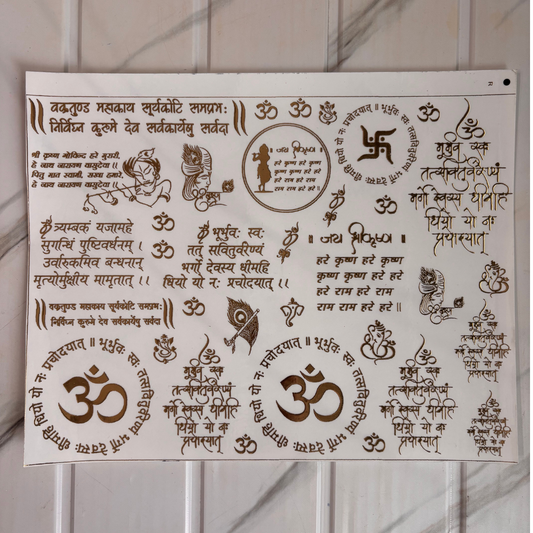 वक्रतुण्ड महाकाय सूर्यकोटि समप्रभः
निर्विघ्नं कुरुमे देव सर्वकार्येषु सर्वदा
ॐ ॐ
श्री कृष्ण गोविन्द हरे मुरारी,
हे नाथ नारायण वासुदेवा ॥
पितु मात स्वामी, सखा हमारे,
हे नाथ नारायण वासुदेवा ॥
॥ जय श्रीकृष्ण ॥
हरे कृष्ण हरे कृष्ण
कृष्ण कृष्ण हरे हरे
हरे राम हरे राम
राम राम हरे हरे ॥
ॐ भूर्भुवः स्वः तत्सवितुर्वरेण्यं भर्गो देवस्यः धीमहि धियो यो नः प्रचोदयात् ॥
ॐ
ॐ
ॐ
भूर्भुवः स्वः
तत्सवितुर्वरेण्यं
भर्गो देवस्य धीमहि
धियो यो नः
प्रचोदयात्
ॐ त्र्यम्बकं यजामहे
सुगन्धिं पुष्टिवर्धनम् ।
उर्वारुकमिव बन्धनान्
मृत्योर्मुक्षीय मामृतात् ।।
ॐ
ॐ
ॐ भूर्भुवः स्वः
तत् सवितुर्वरेण्यं
भर्गो देवस्य धीमहि
धियो यो नः प्रचोदयात् ॥
॥ जय श्रीकृष्ण ॥
हरे कृष्ण हरे कृष्ण
कृष्ण कृष्ण हरे हरे
हरे राम हरे राम
राम राम हरे हरे ॥
वक्रतुण्ड महाकाय सूर्यकोटि समप्रभः
निर्विघ्नं कुरुमे देव सर्वकार्येषु सर्वदा
ॐ
ॐ भूर्भुवः स्वः तत्सवितुर्वरेण्यं भर्गो देवस्यः धीमहि धियो यो नः प्रचोदयात् ॥
ॐ
ॐ
भूर्भुवः स्वः
तत्सवितुर्वरेण्यं
भर्गो देवस्य धीमहि
धियो यो नः
प्रचोदयात्
ॐ
ॐ भूर्भुवः स्वः तत्सवितुर्वरेण्यं भर्गो देवस्यः धीमहि धियो यो नः प्रचोदयात् ॥
ॐ
ॐ
ॐ
भूर्भुवः स्वः
तत्सवितुर्वरेण्यं
भर्गो देवस्य धीमहि
धियो यो नः
प्रचोदयात्
ॐ
भूर्भुवः स्वः
तत्सवितुर्वरेण्यं
भर्गो देवस्य धीमहि
धियो यो नः
प्रचोदयात्